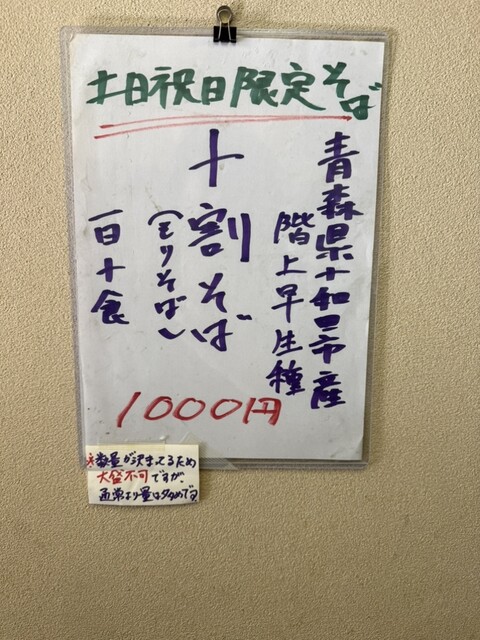 土日祝日限定そば
青森県十和田市産
階上早生種
十割そば
(もりそば)
一日十食
1000円
※数量が決まってるため
大盛不可ですが、
通常より量は多めです